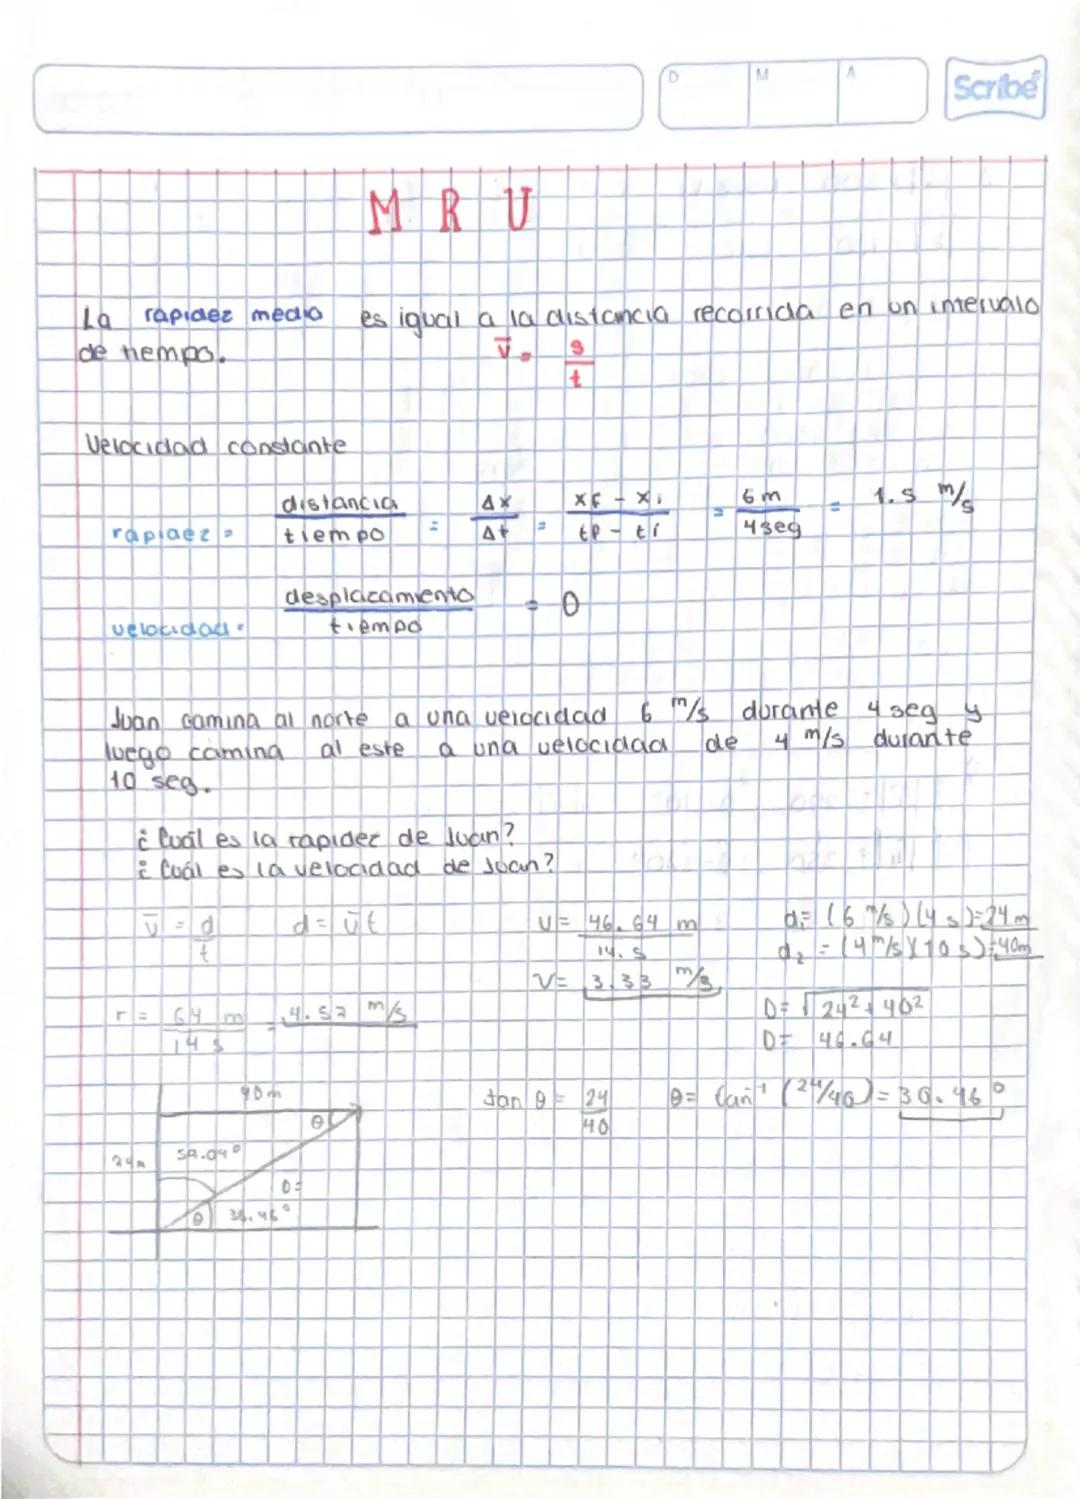 D M A Scribe
M R U
La rapidez media es igual a la distancia recorrida en un intervalo
de tiempo. v̄ = s/t
Velocidad constante
rapidez = distancia/tiempo = Δx/Δt = xf - xi/tf - ti = 6 m/4 seg = 1.5 m/s
velocidad = desplazamiento/tiempo = 0
Juan camina al norte a una velocidad 6 m/s durante 4 seg y
luego camina al este a una velocidad de 4 m/s durante
10 seg.
¿Cuál es la rapidez de Juan?
¿Cuál es la velocidad de Juan?
v̄ = d/t d = v̄t V = 46.64 m/14. s d₁ = (6 m/s)(4 s) = 24 m
d₂ = (4 m/s)(10 s) = 40m
V = 3.33 m/s
r = 64 m/14 s = 4.57 m/s D = √24² + 40²
D = 46.64
40m tan θ = 24/40 θ = tan⁻¹ (24/40) = 30.96°
θ
24m 59.04°
D=
θ 30.96°